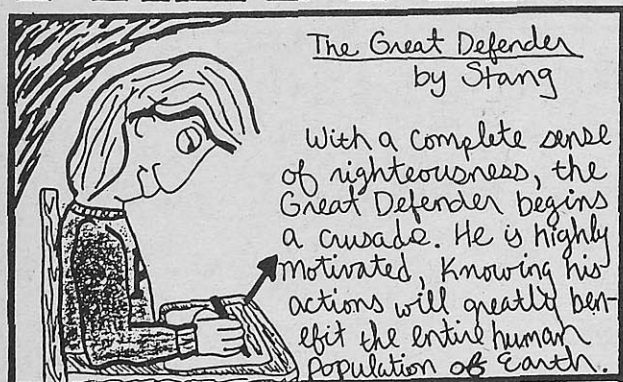 The Great Defender
by Stang
With a complete sense
of righteousness, the
Great Defender begins
a crusade. He is highly
motivated, Knowing his
actions will greatly ben-
efit the entire human
Population of Earth.